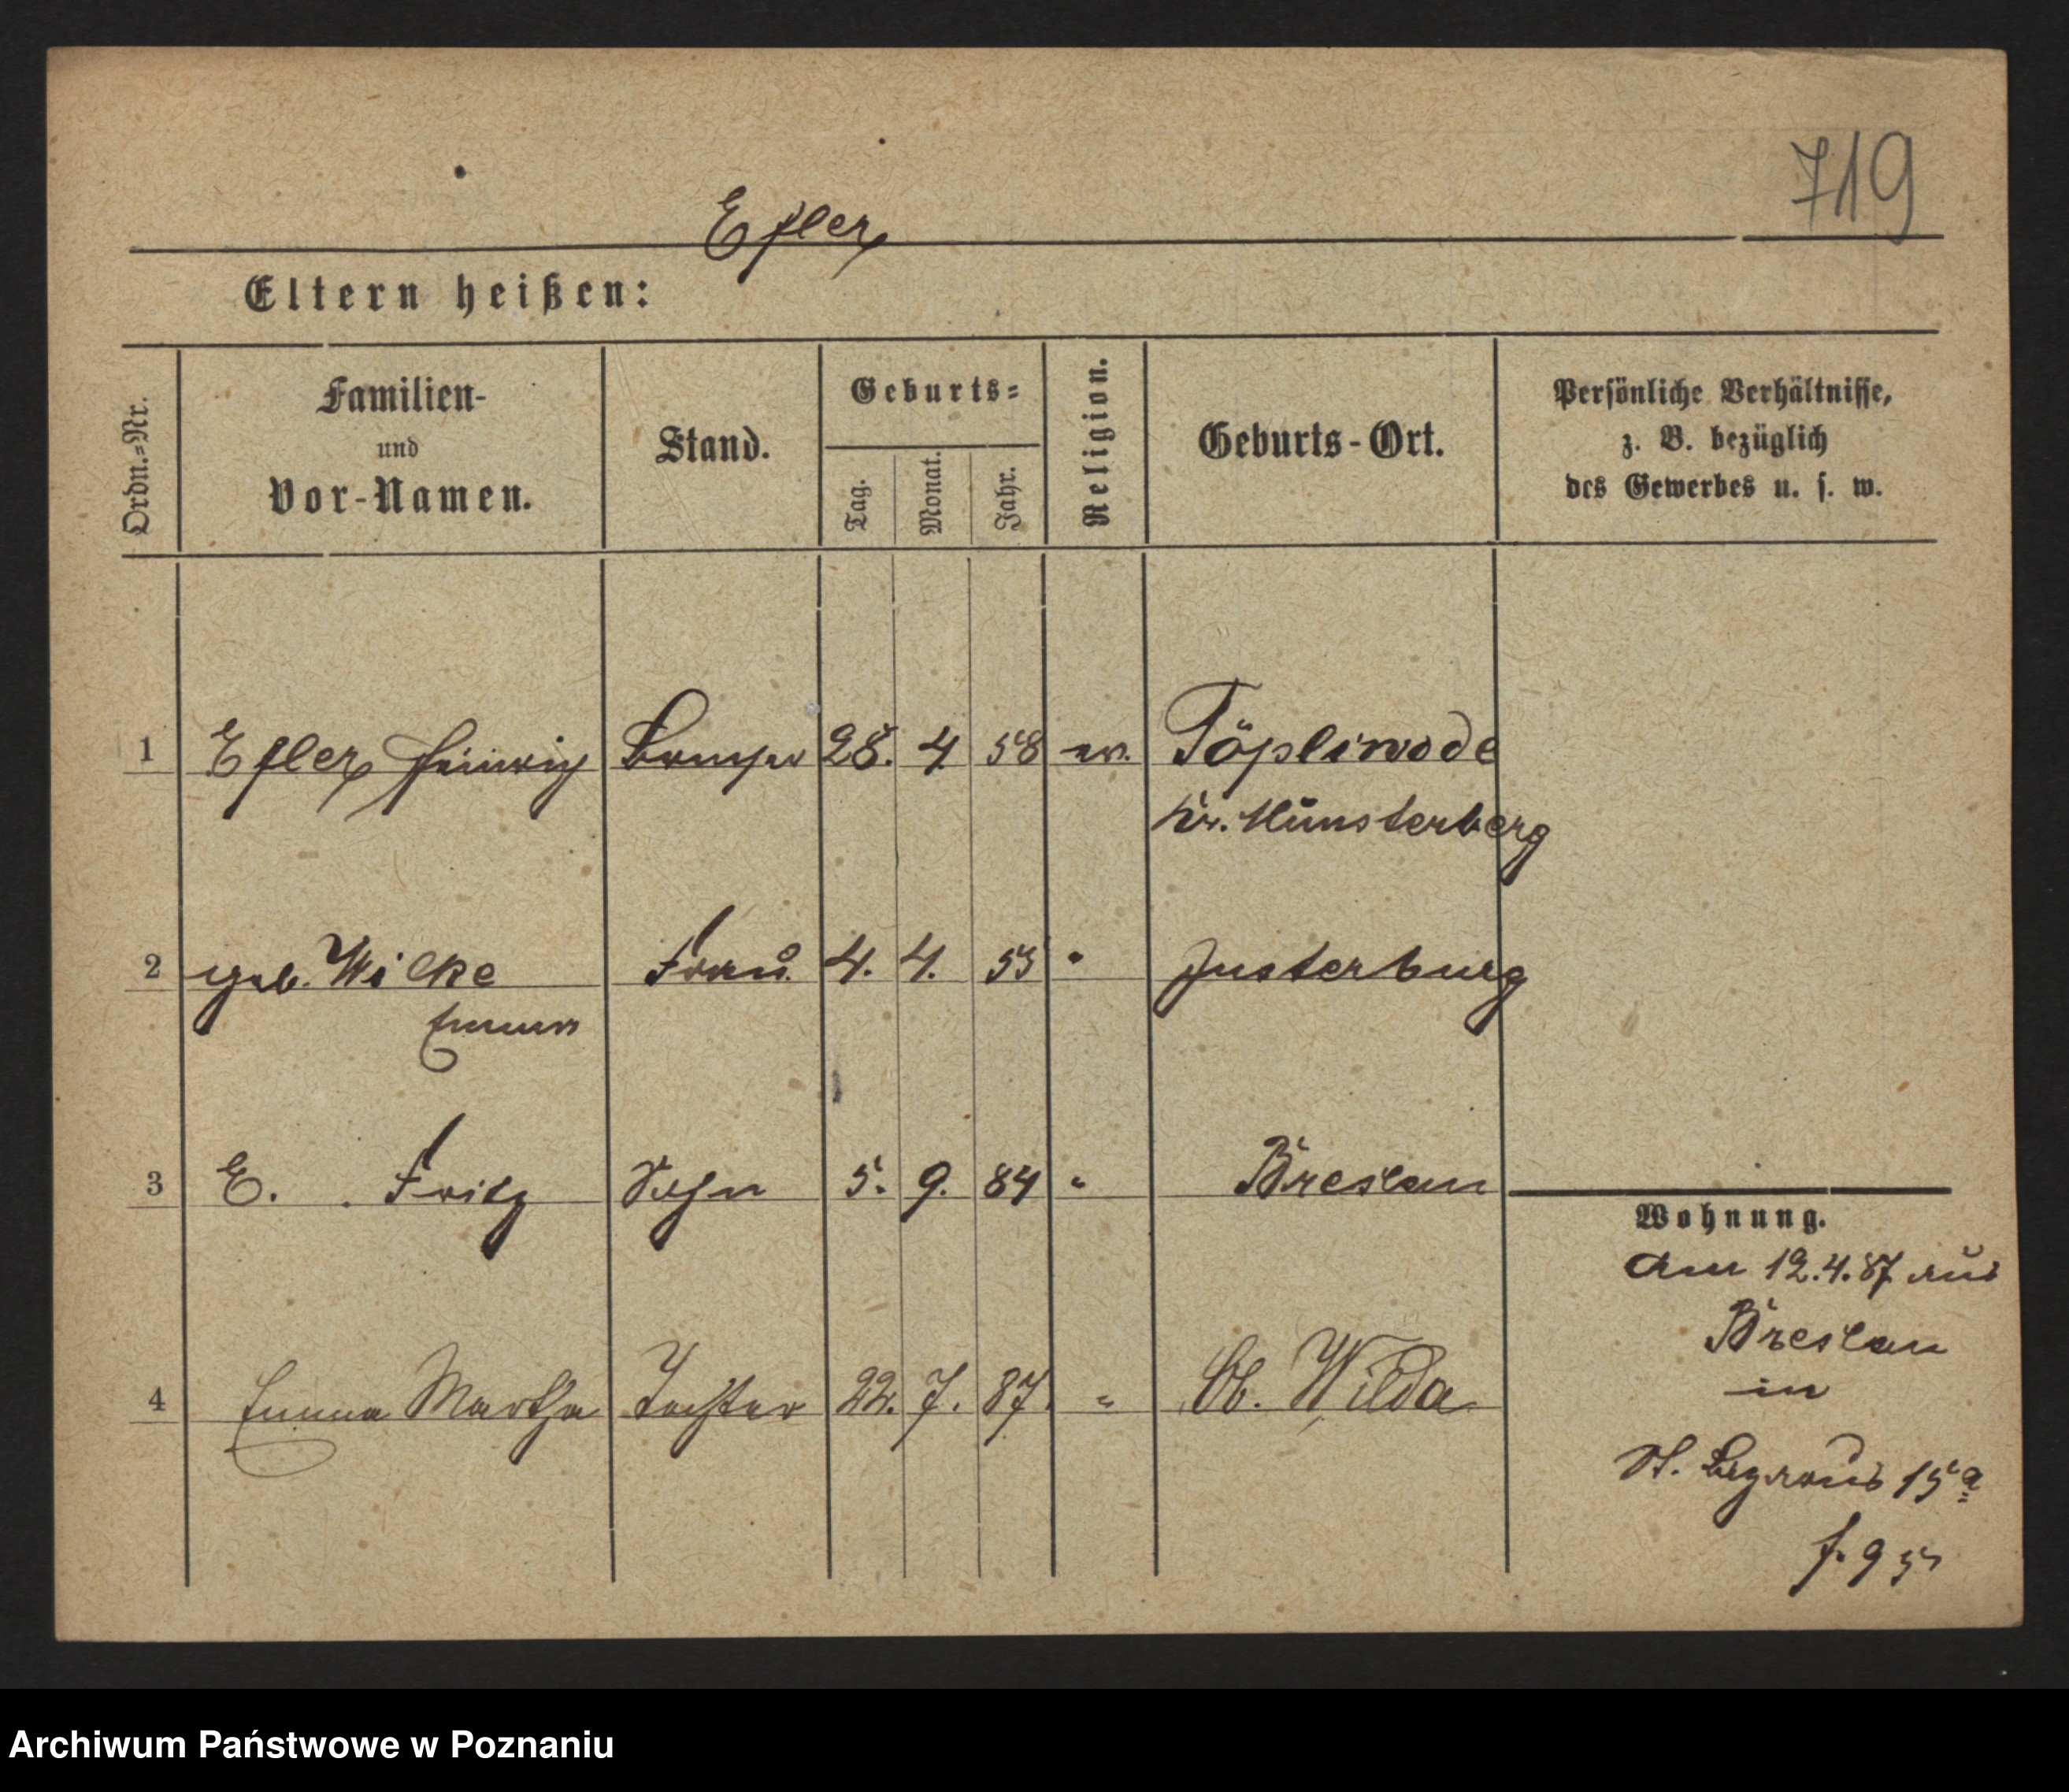 719
Efler
Eltern heißen:
Ordn.-Nr.
Familien-
und
Vor-Namen.
Stand.
Geburts=
Tag.
Monat.
Jahr.
Religion.
Geburts-Ort.
Persönliche Verhältnisse,
z. B. bezüglich
des Gewerbes u. s. w.
1 Efler Heinrich 28. 4 58 ev. Töpliwode
Kr. Münsterberg
2 geb. Wilke Frau 4. 4. 53 " Insterburg
Emma
3 E. . Fritz Sohn 5. 9. 84 " Breslau
Wohnung.
Am 12.4.87 aus
Breslau
in
4 Emma Martha Tochter 22. 7. 87. " Ob. Wilda
St. Lazarus 15a
f. 95
Archiwum Państwowe w Poznaniu